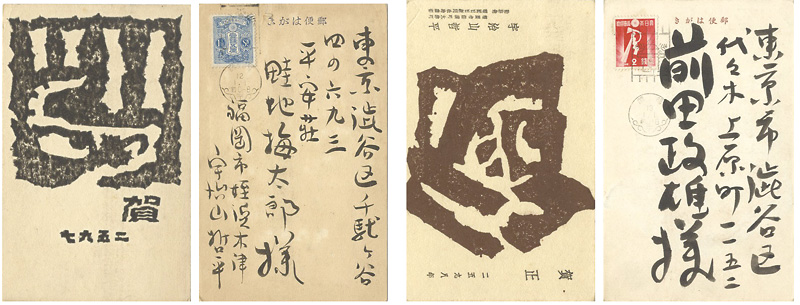 賀
二五九七
郵便はがき
東京澁谷区千駄ヶ谷
四の六九三
平安荘
畦地梅太郎様
福岡市姪浜
宇治山哲平
宇治山哲平
賀正
二五九八年
郵便はがき
東京市澁谷区
代々木上原町
前田政雄様